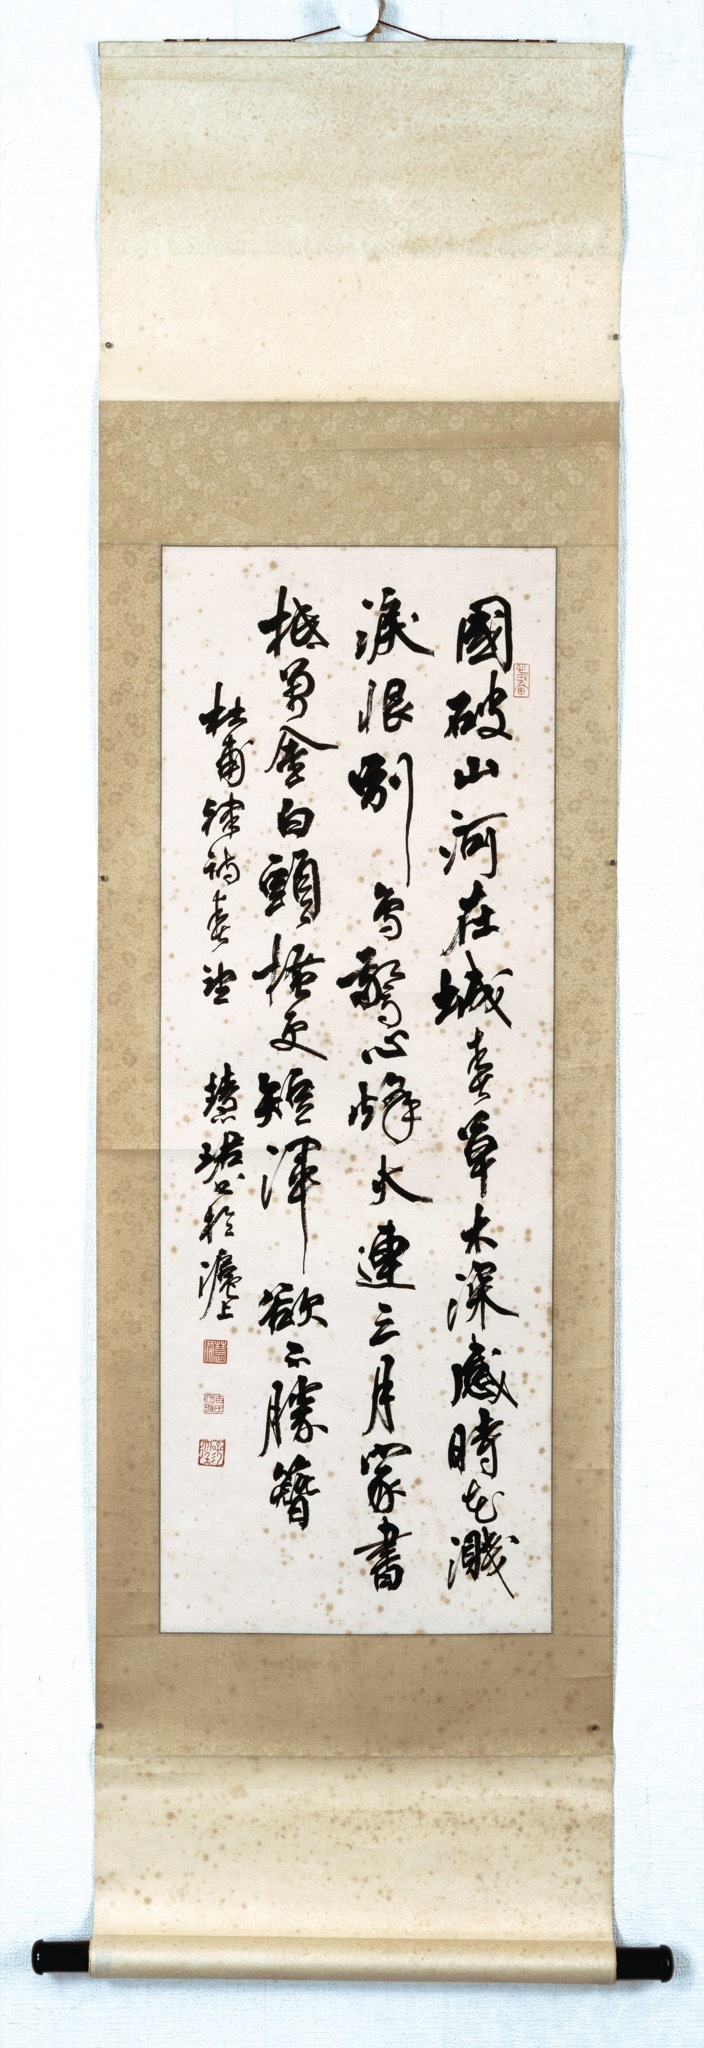 國破山河在城春草木深感時花濺
淚恨別鳥驚心烽火連三月家書
抵萬金白頭搔更短渾欲不勝簪
杜甫律詩春望 慧珺書於滬上